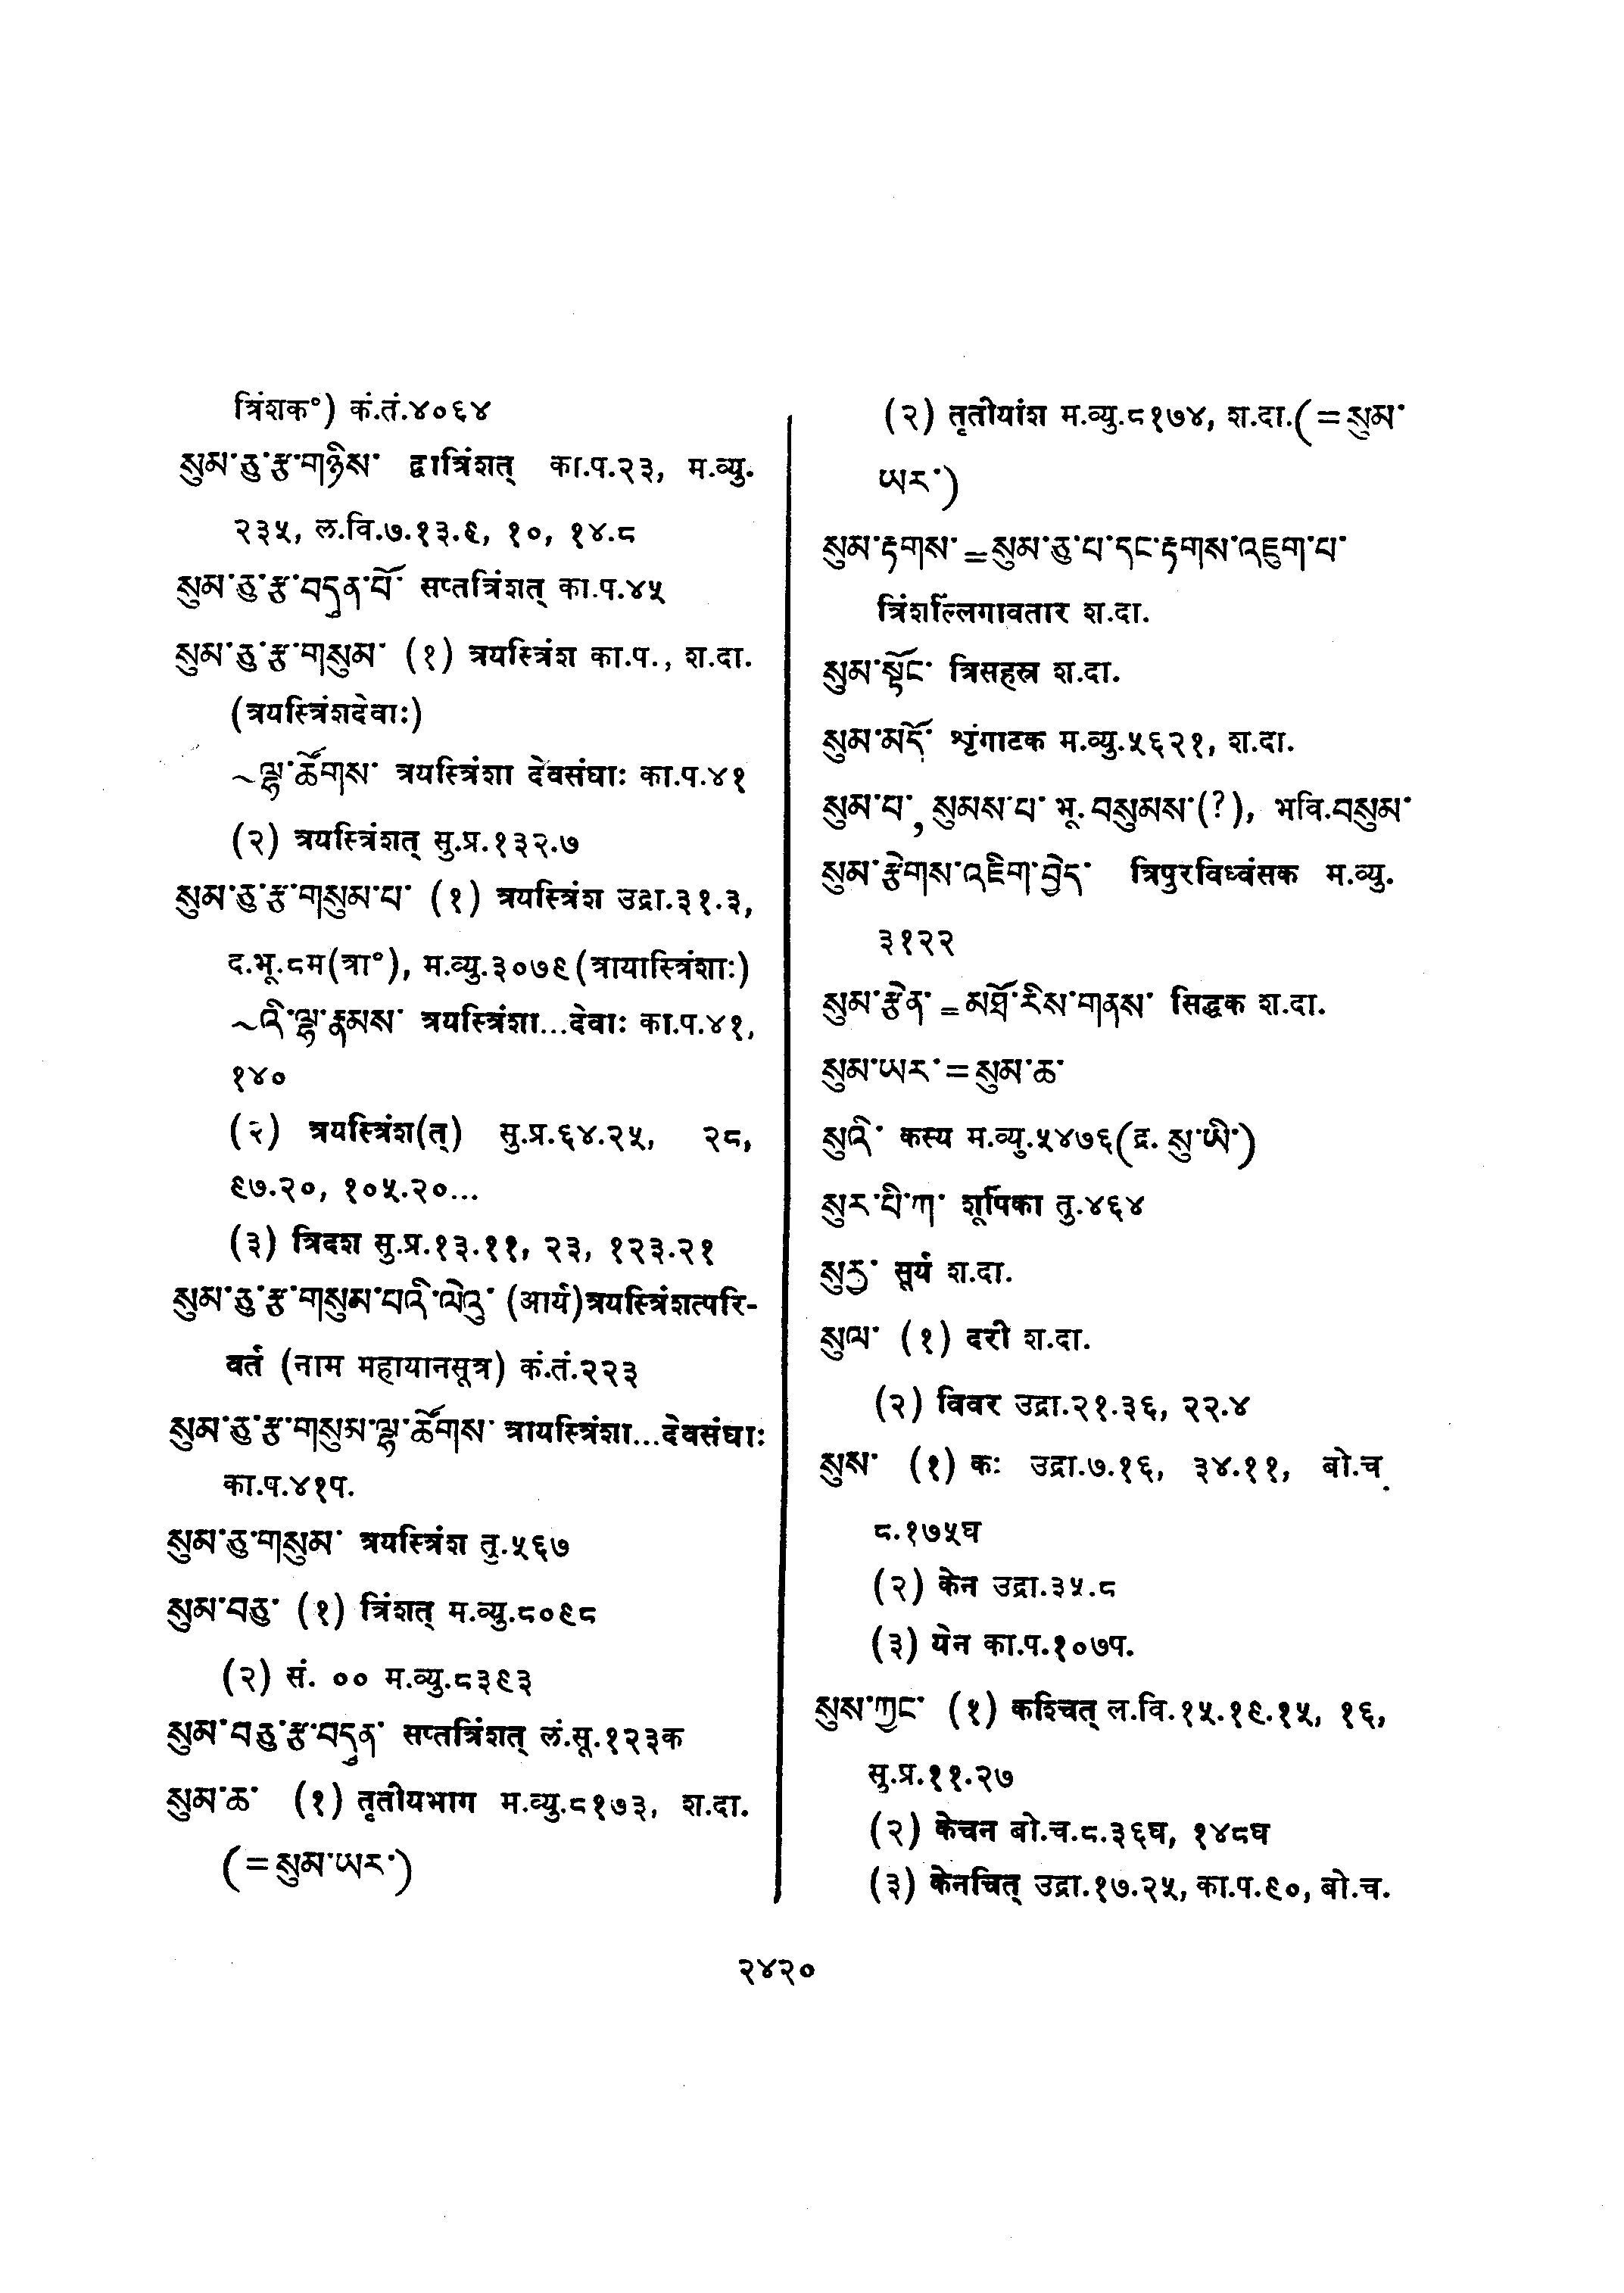 त्रिंशक°) कं.तं.४०६४
སུམ་ཅུ་རྩ་གཉིས་ द्वात्रिंशत् का.प.२३, म.व्यु.
२३५, ल.वि.७.१३.९, १०, १४.८
སུམ་ཅུ་རྩ་བདུན་པོ་ सप्तत्रिंशत् का.प.४५
སུམ་ཅུ་རྩ་གསུམ་ (१) त्रयस्त्रिंश का.प., श.दा.
(त्रयस्त्रिंशदेवाः)
~ལྷ་ཚོགས་ त्रयस्त्रिंशा देवसंघाः का.प.४१
(२) त्रयस्त्रिंशत् सु.प्र.१३२.७
སུམ་ཅུ་རྩ་གསུམ་པ་ (१) त्रयस्त्रिंश उद्रा.३१.३,
द.भू.८म(त्रा°), म.व्यु.३०७९(त्रायास्त्रिंशाः)
~འི་ལྷ་རྣམས་ त्रयस्त्रिंशा...देवाः का.प.४१,
१४०
(२) त्रयस्त्रिंश(त्) सु.प्र.६४.२५, २८,
९७.२०, १०५.२०...
(३) त्रिदश सु.प्र.१३.११, २३, १२३.२१
སུམ་ཅུ་རྩ་གསུམ་པའི་ལེའུ་ (आर्य)त्रयस्त्रिंशत्परि-
वर्त (नाम महायानसूत्र) कं.तं.२२३
སུམ་ཅུ་རྩ་གསུམ་ལྷ་ཚོགས་ त्रायस्त्रिंशा...देवसंघाः
का.प.४१प.
སུམ་ཅུ་གསུམ་ त्रयस्त्रिंश तु.५६७
སུམ་བཅུ་ (१) त्रिंशत् म.व्यु.८०९८
(२) सं. ०० म.व्यु.८३९३
སུམ་བཅུ་རྩ་བདུན་ सप्तत्रिंशत् लं.सू.१२३क
སུམ་ཆ་ (१) तृतीयभाग म.व्यु.८१७३, श.दा.
(=སུམ་ཡར་)
(२) तृतीयांश म.व्यु.८१७४, श.दा.(=སུམ་
ཡར་)
སུམ་རྟགས་=སུམ་ཅུ་པ་དང་རྟགས་འཇུག་པ་
त्रिंशल्लिंगावतार श.दा.
སུམ་སྟོང་ त्रिसहस्र श.दा.
སུམ་མདོ་ शृंगाटक म.व्यु.५६२१, श.दा.
སུམ་པ་, སུམས་པ་ भू.བསུམས་(?), भवि.བསུམ་
སུམ་རྩེགས་འཇིག་བྱེད་ त्रिपुरविध्वंसक म.व्यु.
३१२२
སུམ་རྩེན་=མཐོ་རིས་གནས་ सिद्धक श.दा.
སུམ་ཡར་=སུམ་ཆ་
སུའི་ कस्य म.व्यु.५४७६(द्र. སུ་ཡི་)
སུར་པི་ཀ་ शूर्पिका तु.४६४
སུརྱ་ सूर्य श.दा.
སུལ་ (१) दरी श.दा.
(२) विवर उद्रा.२१.३६, २२.४
སུས་ (१) कः उद्रा.७.१६, ३४.११, बो.च.
८.१७५घ
(२) केन उद्रा.३५.८
(३) येन का.प.१०७प.
སུས་ཀྱང་ (१) कश्चित् ल.वि.१५.१९.१५, १६,
सु.प्र.११.२७
(२) केचन बो.च.८.३६घ, १४८घ
(३) केनचित् उद्रा.१७.२५, का.प.९०, बो.च.
२४२०